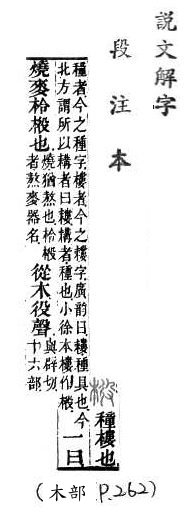 說文解字
段注本
㭒 種樓也
種者今之種字樓者今之樓字廣韵曰耬種具也今
北方謂所以耩者曰耬耩者種也小徐本樓作㭒
一曰
燒麥柃㭒也
燒猶熬也柃㭒
者熬麥器名
從木役聲
與辟切
十六部
(木部 P.262)